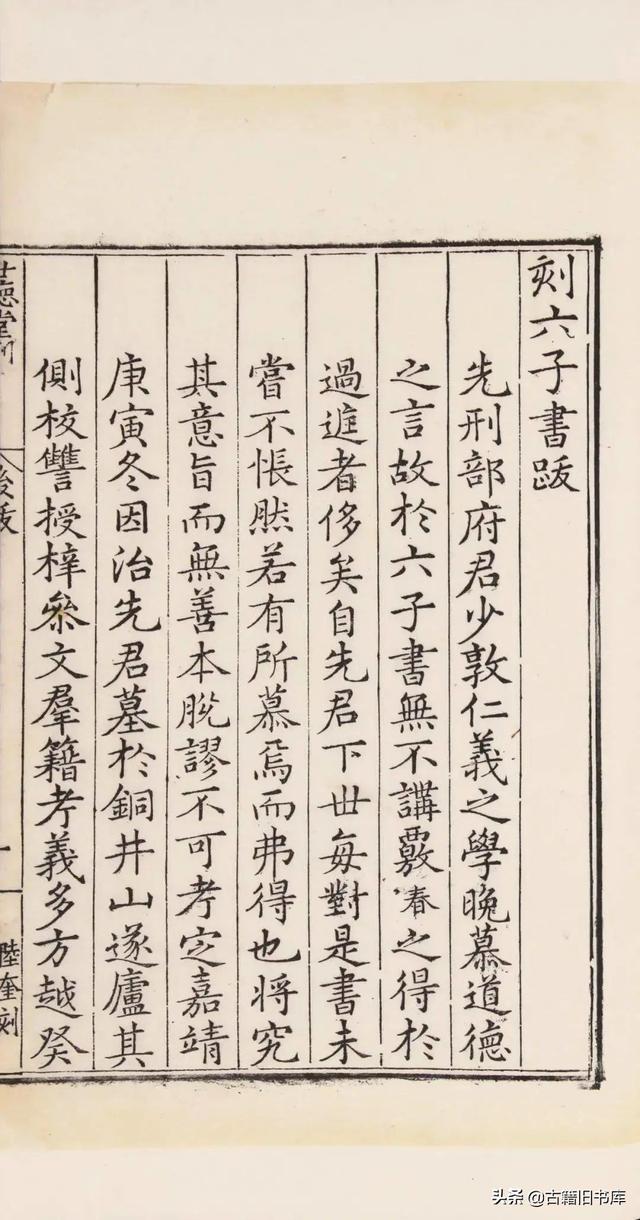 刻六子書跋
先刑部府君少敦仁義之學晚慕道德
之言故於六子書無不講覈春之得於
過進者侈矣自先君下世每對是書未
嘗不悵然若有所慕焉而弗得也將究
其意旨而無善本脫謬不可考定嘉靖
庚寅冬因治先君墓於銅井山遂廬其
側校讐授梓叅文羣籍考義多方越癸
世德堂刊
後跋
一
陸奎刻
头条 @古籍旧书库